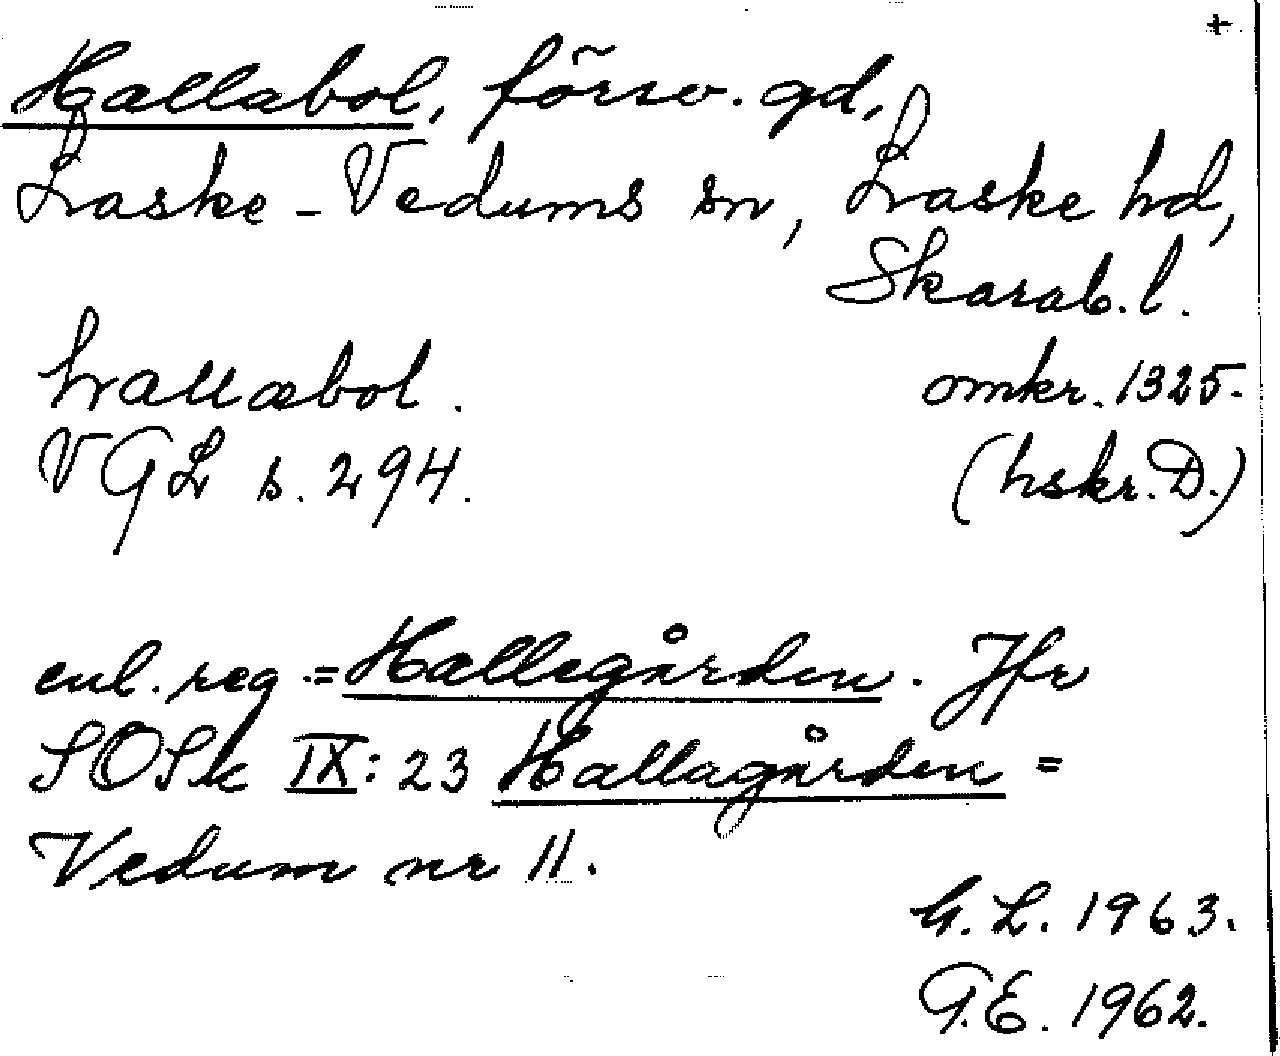 +
Hallabol, försv. gd,
Laske-Vedums sn, Laske hd,
Skarab. l.
hallæbol. omkr. 1325.
VGL s. 294. (hskr. D.)
enl. reg. = Hallegården. Jfr
SOSk IX: 23 Hallagården =
Vedum nr 11.
G. L. 1963.
G. E. 1962.